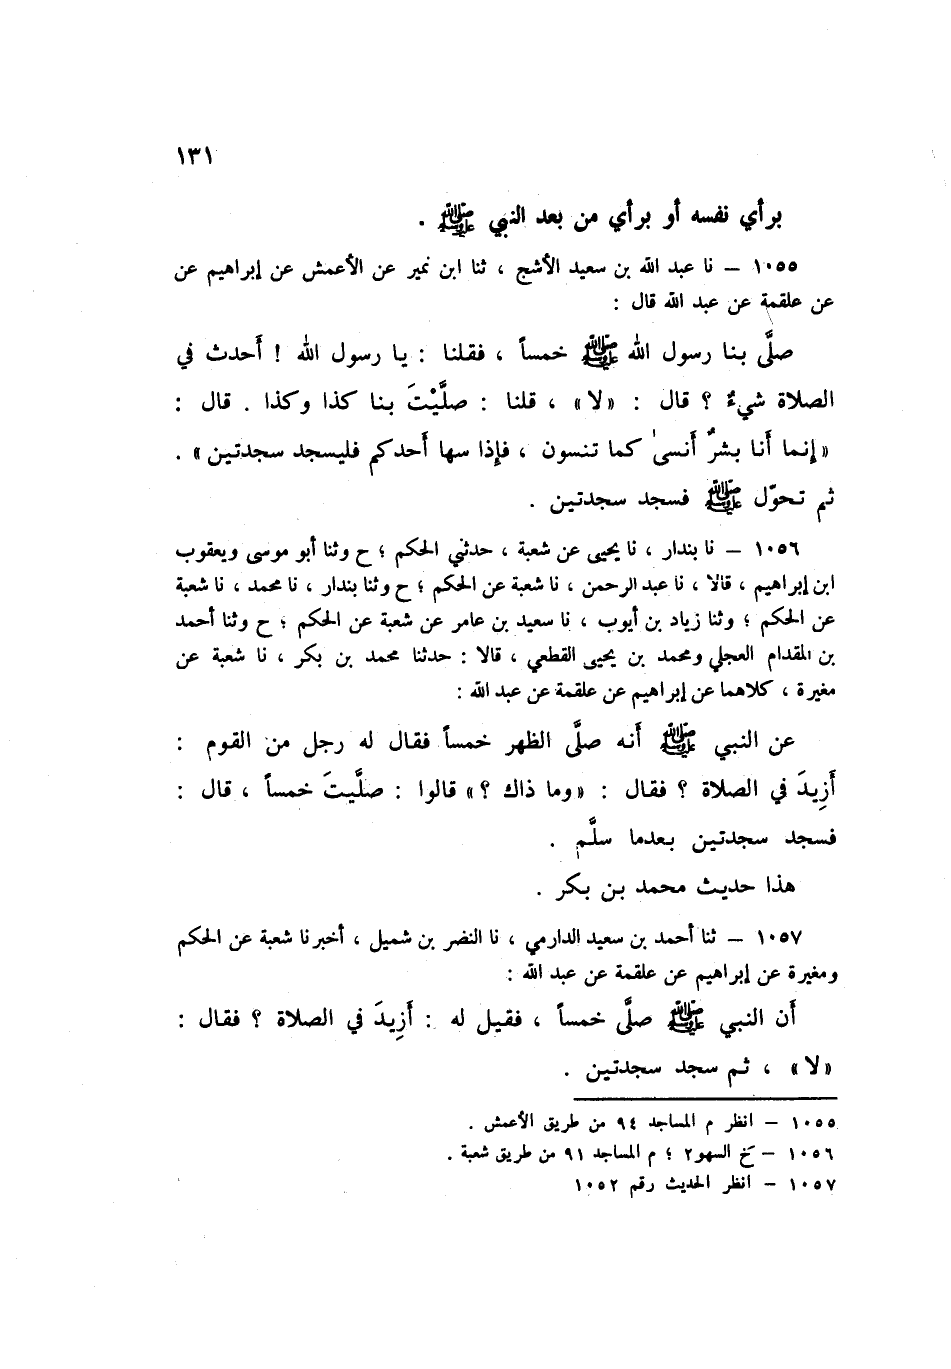 ١٣١
برأي نفسه أو برأي من بعد النبي ﷺ .
١٠٥٥ – نا عبد الله بن سعيد الأشج ، ثنا ابن نمير عن الأعمش عن إبراهيم عن
عن علقمة عن عبد الله قال :
صلَّى بنا رسول الله ﷺ خمساً ، فقلنا : يا رسول الله ! أَحدث في
الصلاة شيءٌ ؟ قال : «لا» ، قلنا : صلَّيْتَ بنا كذا وكذا . قال :
«إنما أَنا بشرٌ أَنسىٰ كما تنسون ، فإذا سها أَحدكم فليسجد سجدتين» .
ثم تحوّل ﷺ فسجد سجدتين .
١٠٥٦ – نا بندار ، نا يحيى عن شعبة ، حدثني الحكم ؛ ح وثنا أبو موسى ويعقوب
ابن إبراهيم ، قالا ، نا عبد الرحمن ، نا شعبة عن الحكم ؛ ح وثنا بندار ، نا محمد ، نا شعبة
عن الحكم ؛ وثنا زياد بن أيوب ، نا سعيد بن عامر عن شعبة عن الحكم ؛ ح وثنا أحمد
بن المقدام العجلي ومحمد بن يحيى القطعي ، قالا : حدثنا محمد بن بكر ، نا شعبة عن
مغيرة ، كلاهما عن إبراهيم عن علقمة عن عبد الله :
عن النبي ﷺ أَنه صلَّى الظهر خمساً فقال له رجل من القوم :
أَزِيدَ في الصلاة ؟ فقال : «وما ذاك ؟» قالوا : صلَّيتَ خمساً ، قال :
فسجد سجدتين بعدما سلَّم .
هذا حديث محمد بن بكر .
١٠٥٧ – ثنا أحمد بن سعيد الدارمي ، نا النضر بن شميل ، أخبرنا شعبة عن الحكم
ومغيرة عن إبراهيم عن علقمة عن عبد الله :
أَن النبي ﷺ صلَّى خمساً ، فقيل له : أَزِيدَ في الصلاة ؟ فقال :
«لا» ، ثم سجد سجدتين .
١٠٥٥ – انظر م المساجد ٩٤ من طريق الأعمش .
١٠٥٦ – خ السهو٢ ؛ م المساجد ٩١ من طريق شعبة .
١٠٥٧ – انظر الحديث رقم ١٠٥٢